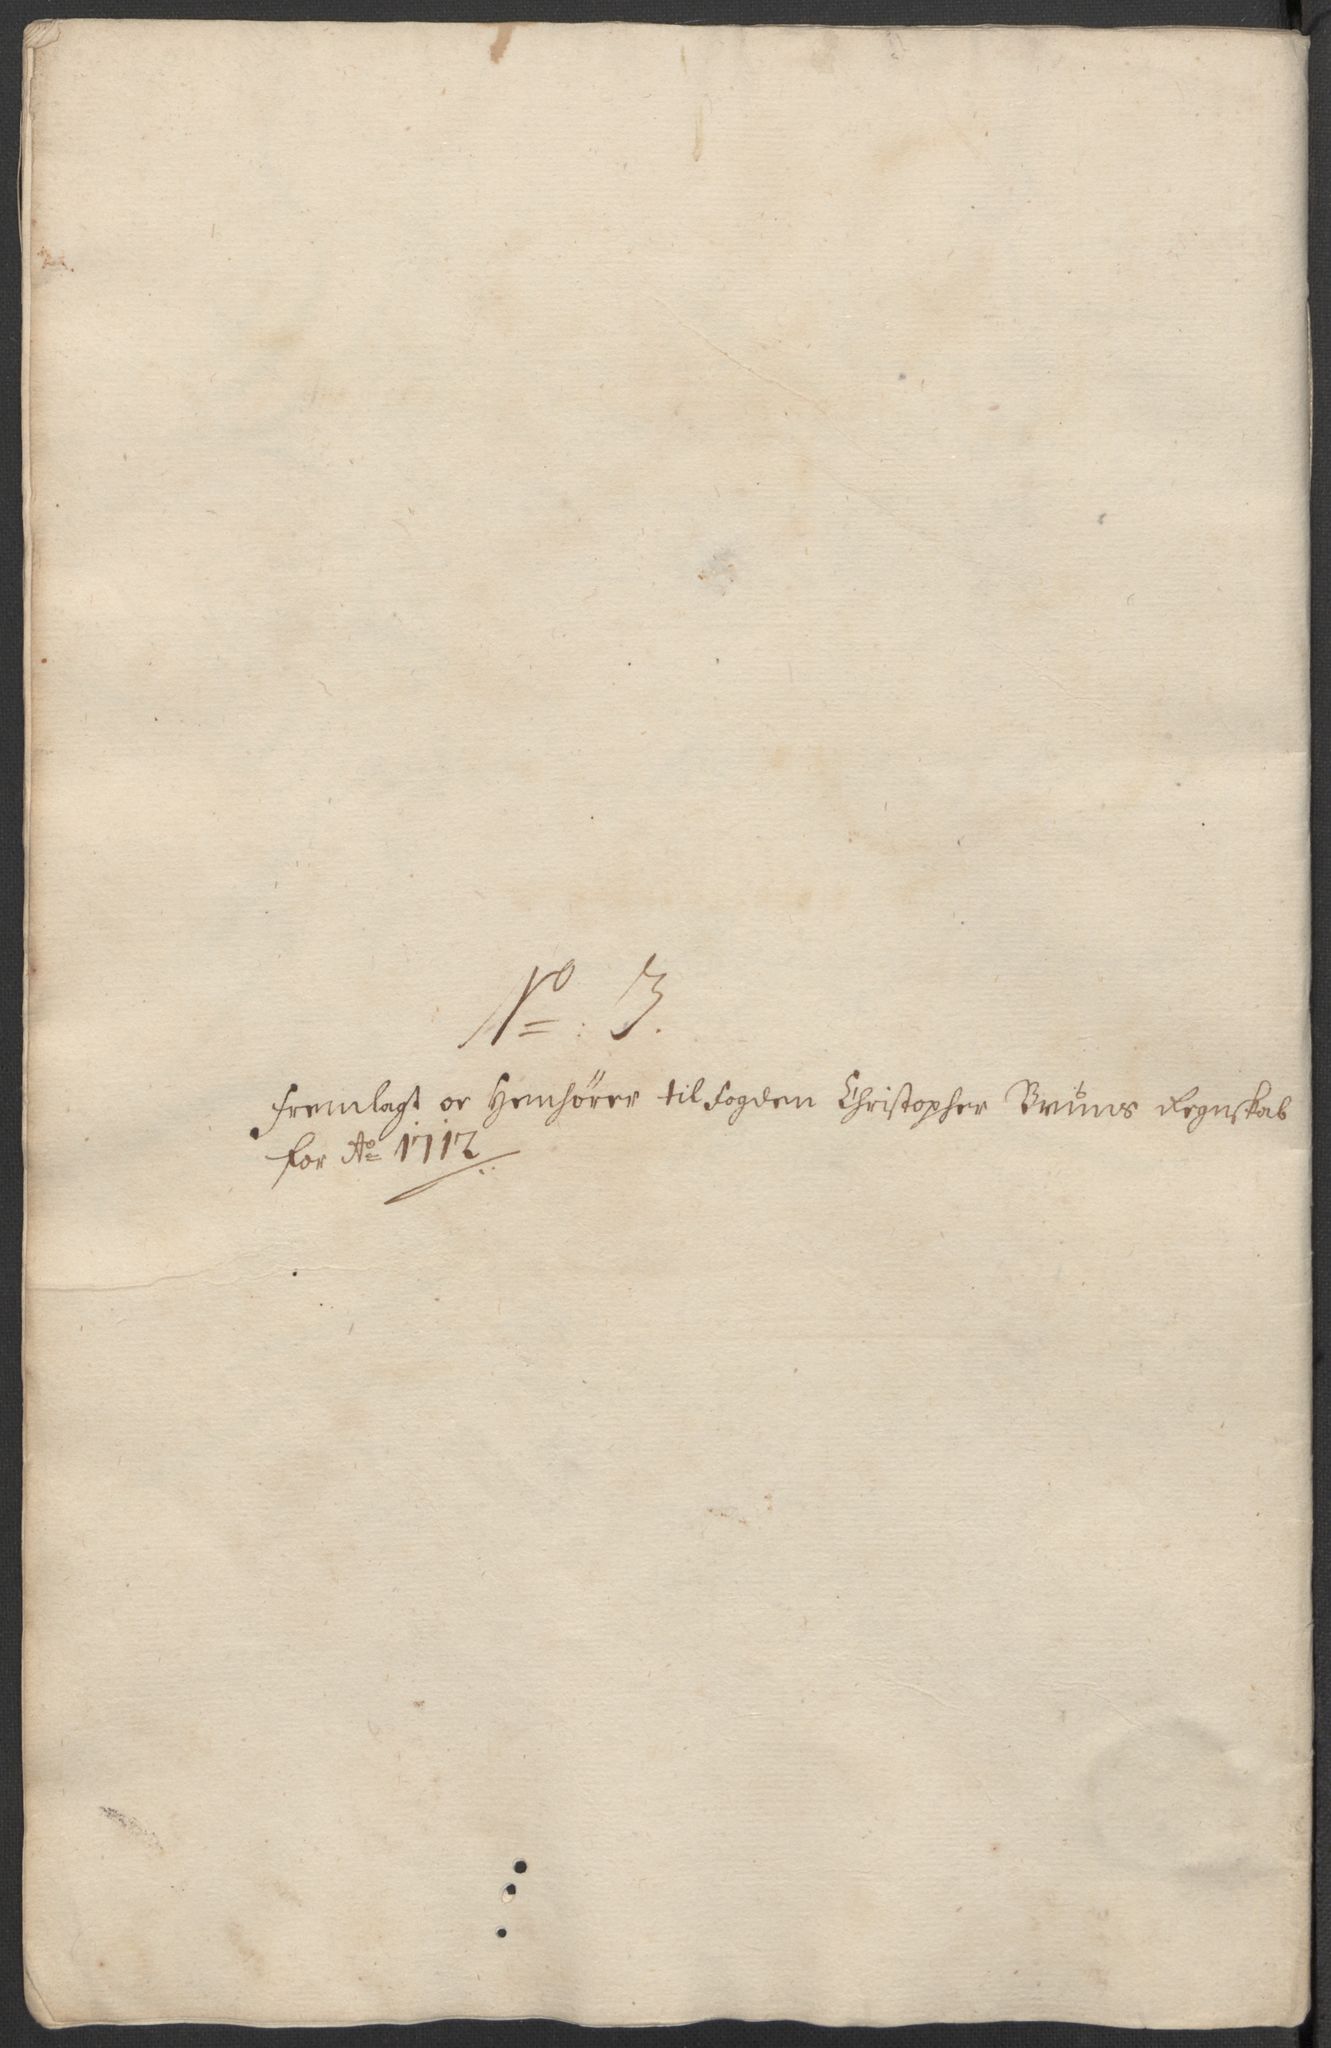 No: 3.
Fremlagt oc Henhörer til Fogden Christopher Bruuns Regnskab
for Ao 1712